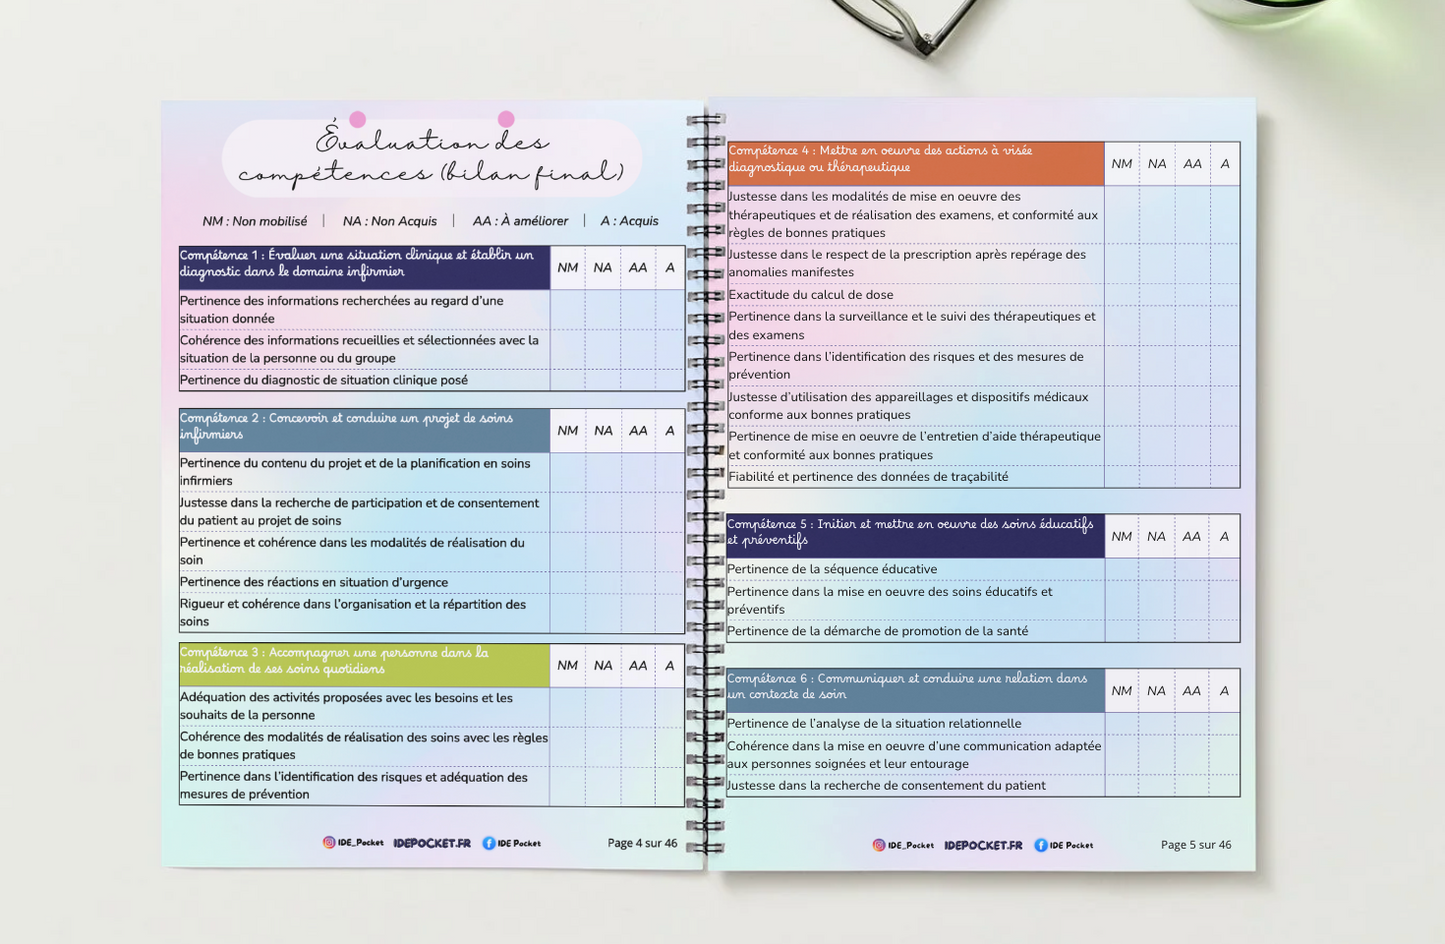 Évaluation des
compétences (bilan final)
NM : Non mobilisé | NA : Non Acquis | AA : À améliorer | A : Acquis
Compétence 1 : Évaluer une situation clinique et établir un
diagnostic dans le domaine infirmier
NM NA AA A
Pertinence des informations recherchées au regard d'une
situation donnée
Cohérence des informations recueillies et sélectionnées avec la
situation de la personne ou du groupe
Pertinence du diagnostic de situation clinique posé
Compétence 2 : Concevoir et conduire un projet de soins
infirmiers
NM NA AA A
Pertinence du contenu du projet et de la planification en soins
infirmiers
Justesse dans la recherche de participation et de consentement
du patient au projet de soins
Pertinence et cohérence dans les modalités de réalisation du
soin
Pertinence des réactions en situation d'urgence
Rigueur et cohérence dans l'organisation et la répartition des
soins
Compétence 3 : Accompagner une personne dans la
réalisation de ses soins quotidiens
NM NA AA A
Adéquation des activités proposées avec les besoins et les
souhaits de la personne
Cohérence des modalités de réalisation des soins avec les règles
de bonnes pratiques
Pertinence dans l'identification des risques et adéquation des
mesures de prévention
IDE_Pocket IDEPOCKET.FR IDE Pocket Page 4 sur 46
Compétence 4 : Mettre en oeuvre des actions à visée
diagnostique ou thérapeutique
NM NA AA A
Justesse dans les modalités de mise en oeuvre des
thérapeutiques et de réalisation des examens, et conformité aux
règles de bonnes pratiques
Justesse dans le respect de la prescription après repérage des
anomalies manifestes
Exactitude du calcul de dose
Pertinence dans la surveillance et le suivi des thérapeutiques et
des examens
Pertinence dans l'identification des risques et des mesures de
prévention
Justesse d'utilisation des appareillages et dispositifs médicaux
conforme aux bonnes pratiques
Pertinence de mise en oeuvre de l'entretien d'aide thérapeutique
et conformité aux bonnes pratiques
Fiabilité et pertinence des données de traçabilité
Compétence 5 : Initier et mettre en oeuvre des soins éducatifs
et préventifs
NM NA AA A
Pertinence de la séquence éducative
Pertinence dans la mise en oeuvre des soins éducatifs et
préventifs
Pertinence de la démarche de promotion de la santé
Compétence 6 : Communiquer et conduire une relation dans
un contexte de soin
NM NA AA A
Pertinence de l'analyse de la situation relationnelle
Cohérence dans la mise en oeuvre d'une communication adaptée
aux personnes soignées et leur entourage
Justesse dans la recherche de consentement du patient
IDE_Pocket IDEPOCKET.FR IDE Pocket Page 5 sur 46